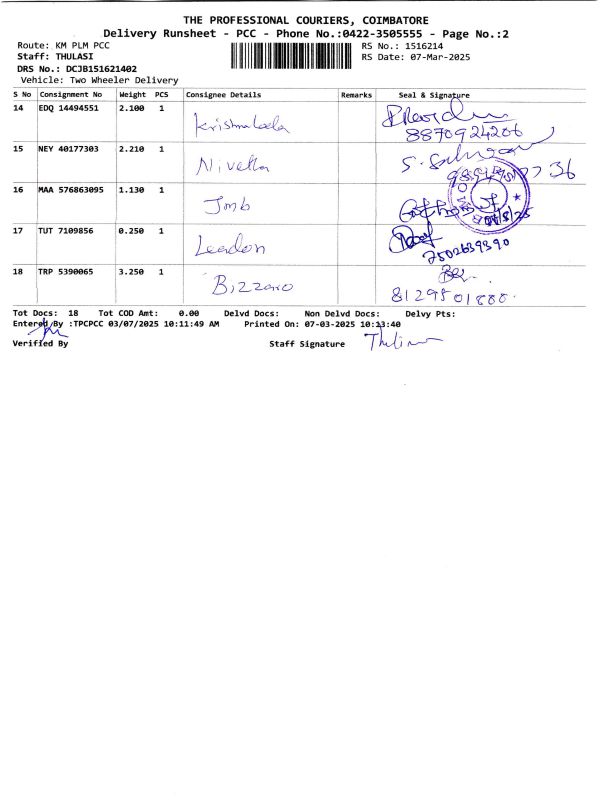 THE PROFESSIONAL COURIERS, COIMBATORE
Delivery Runsheet - PCC - Phone No.:0422-3505555 - Page No.:2
Route: KM PLM PCC RS No.: 1516214
Staff: THULASI RS Date: 07-Mar-2025
DRS No.: DCJB151621402
Vehicle: Two Wheeler Delivery
S No Consignment No Weight PCS Consignee Details Remarks Seal & Signature
14 EDQ 14494551 2.100 1
8870924206
15 NEY 40177303 2.210 1 Nivetha
16 MAA 576863095 1.130 1 Jmb
17 TUT 7109856 0.250 1 Leadon
7502639390
18 TRP 5390065 3.250 1 Bizzaro
8129501888.
Tot Docs: 18 Tot COD Amt: 0.00 Delvd Docs: Non Delvd Docs: Delvy Pts:
Entered By :TPCPCC 03/07/2025 10:11:49 AM Printed On: 07-03-2025 10:23:40
Verified By Staff Signature